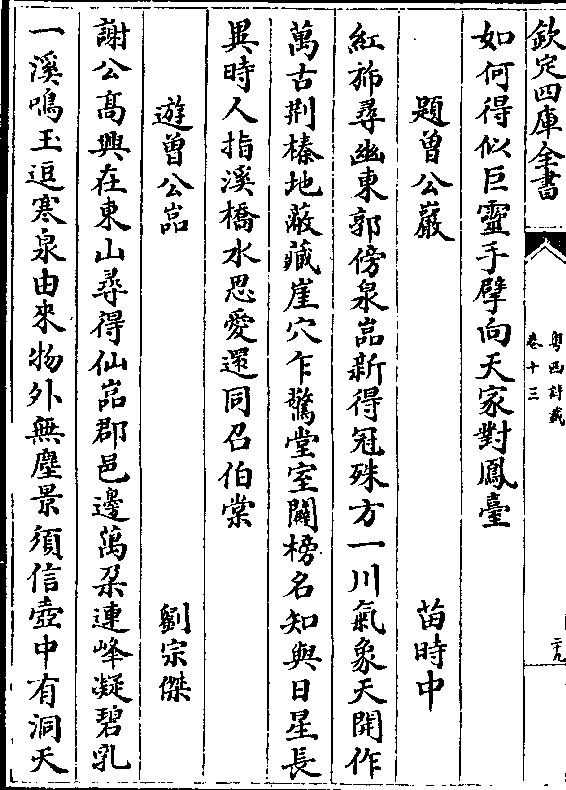 欽定四庫全書
粤西詩載
卷十三
二十九
如何得似巨靈手擘向天家對鳳臺
題曾公巖
苗時中
紅斾尋幽東郭傍泉嵓新得冠殊方一川氣象天開作
萬古荆榛地蔽藏崖穴乍驚堂室闢榜名知與日星長
異時人指溪橋水思愛還同召伯棠
遊曾公嵓
劉宗傑
謝公髙興在東山尋得仙嵓郡邑邊萬朶連峰凝碧乳
一溪鳴玉逗寒泉由來物外無塵景須信壺中有洞天